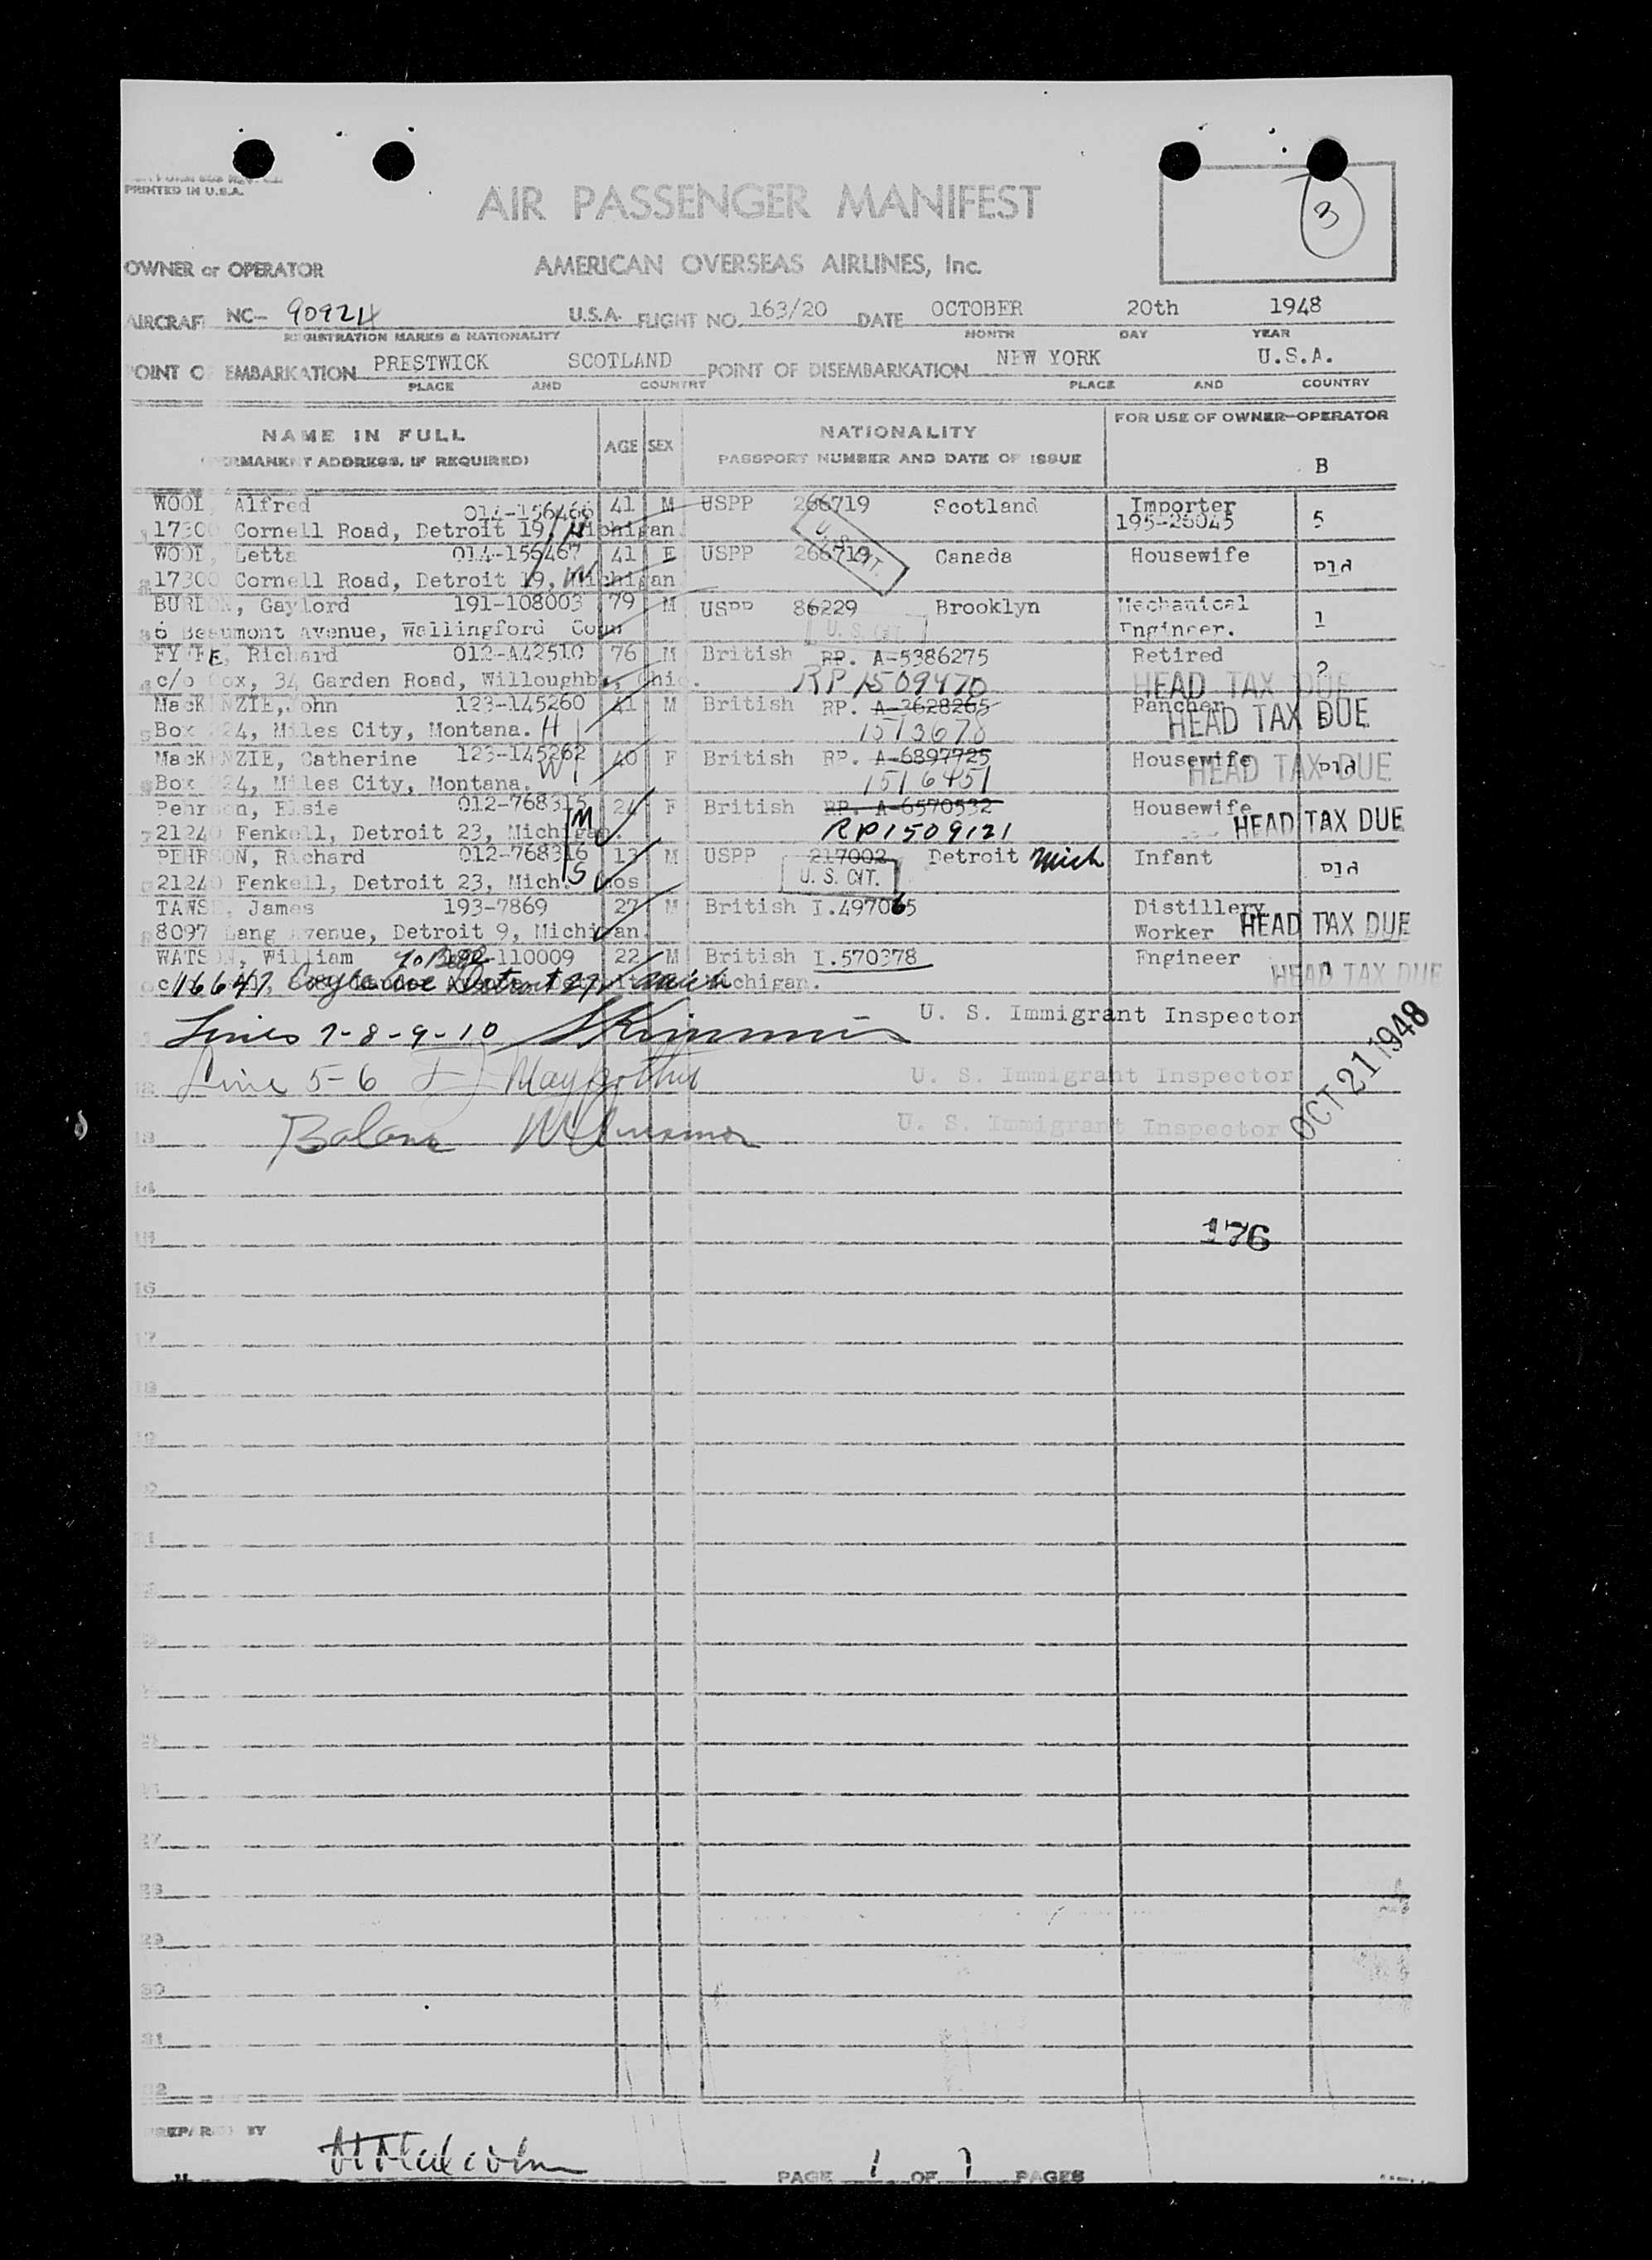 PRINTED IN U.S.A.
3
AIR PASSENGER MANIFEST
OWNER or OPERATOR AMERICAN OVERSEAS AIRLINES, Inc.
AIRCRAF NC- 90924 U.S.A. FLIGHT NO. 163/20 DATE OCTOBER 20th 1948
REGISTRATION MARKS & NATIONALITY MONTH DAY YEAR
POINT OF EMBARKATION PRESTWICK SCOTLAND POINT OF DISEMBARKATION NEW YORK U.S.A.
PLACE AND COUNTRY PLACE AND COUNTRY
NAME IN FULL AGE SEX NATIONALITY FOR USE OF OWNER-OPERATOR
(PERMANENT ADDRESS, IF REQUIRED) PASSPORT NUMBER AND DATE OF ISSUE B
WOOD, Alfred 014-156466 41 M USPP 266719 Scotland Importer 5
17300 Cornell Road, Detroit 19, Michigan H 195-26045
U. S. CIT.
WOOD, Letta 014-156467 41 F USPP 266719 Canada Housewife Pld
17300 Cornell Road, Detroit 19, Michigan W
BURDON, Gaylord 191-108003 79 M USPP 86229 Brooklyn Mechanical 1
6 Beaumont Avenue, Wallingford Conn U. S. CIT. Engineer.
FYFFE, Richard 012-A42510 76 M British RP. A-5386275 Retired 2
c/o Cox, 34 Garden Road, Willoughby, Ohio. RP 1509470 HEAD TAX DUE
MacKENZIE, John 123-145260 41 M British RP. A-3628265 Rancher HEAD TAX DUE
Box 224, Miles City, Montana. H 1513678
MacKENZIE, Catherine 123-145262 40 F British RP. A-6897725 Housewife Pld HEAD TAX DUE
Box 224, Miles City, Montana. W 1516451
Pehrson, Elsie 012-768315 24 F British RP. A-6570532 Housewife HEAD TAX DUE
21240 Fenkell, Detroit 23, Michigan. M RP1509121
PEHRSON, Richard 012-768316 13 M USPP 217002 Detroit Mich Infant Pld
21240 Fenkell, Detroit 23, Mich. S mos U. S. CIT.
TAWSE, James 193-7869 27 M British I.497065 Distillery HEAD TAX DUE
8097 Lang Avenue, Detroit 9, Michigan. Worker
WATSON, William -110009 22 M British I.570378 Engineer HEAD TAX DUE
16647, Detroit 27 Mich Michigan.
Lines 7-8-9-10 U. S. Immigrant Inspector
Line 5-6 U. S. Immigrant Inspector
U. S. Immigrant Inspector
OCT 21 1948
14
176
16
17
18
19
27
28
29
30
31
32
PREPARED BY
PAGE 1 OF 1 PAGES